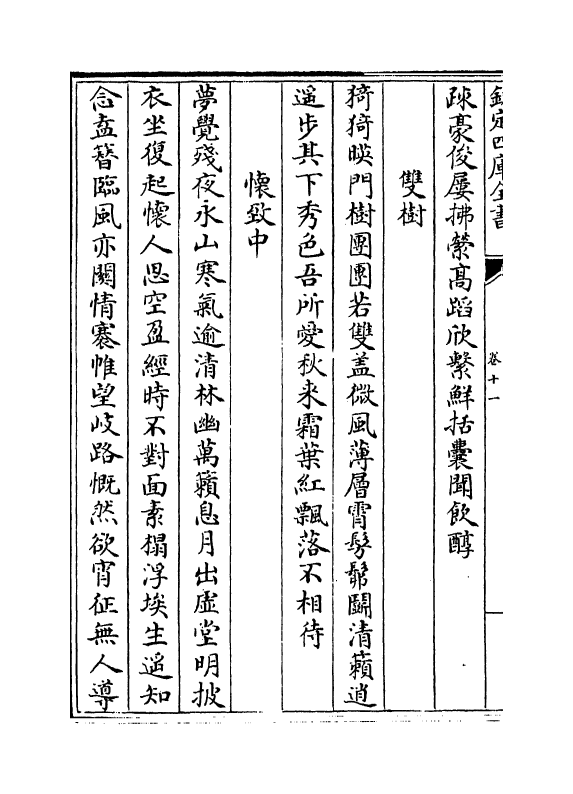 欽定四庫全書
卷十一
疎豪俊屢拂縈高蹈欣繫鮮括囊聞飲醇
雙樹
猗猗暎門樹團團若雙盖微風薄層霄髣髴鬭清籟逍
遥步其下秀色吾所愛秋来霜葉紅飄落不相待
懷致中
夢覺殘夜永山寒氣逾清林幽萬籟息月出虚堂明披
衣坐復起懷人思空盈經時不對面素榻浮埃生遥知
念盍簪臨風亦關情褰帷望岐路慨然欲宵征無人導